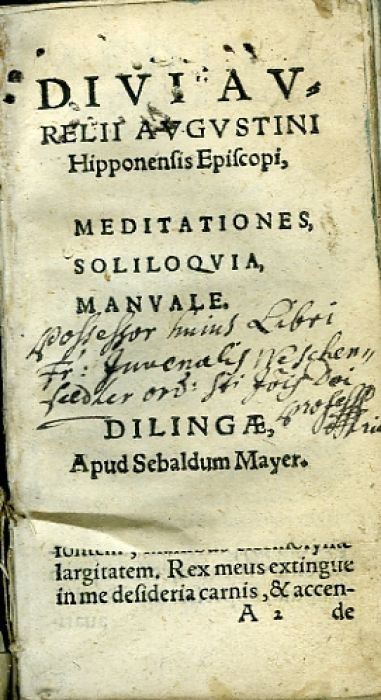 DIVI AV-
RELII AVGVSTINI
Hipponensis Episcopi,
MEDITATIONES,
SOLILOQVIA,
MANVALE.
Possessor huius Libri
Fr: Juvenalis Weschen-
fiedler ord: Sti Jois Dei
Profess
DILINGÆ,
Apud Sebaldum Mayer.
largitatem. Rex meus extingue
in me desideria carnis, & accen-
A 2 de